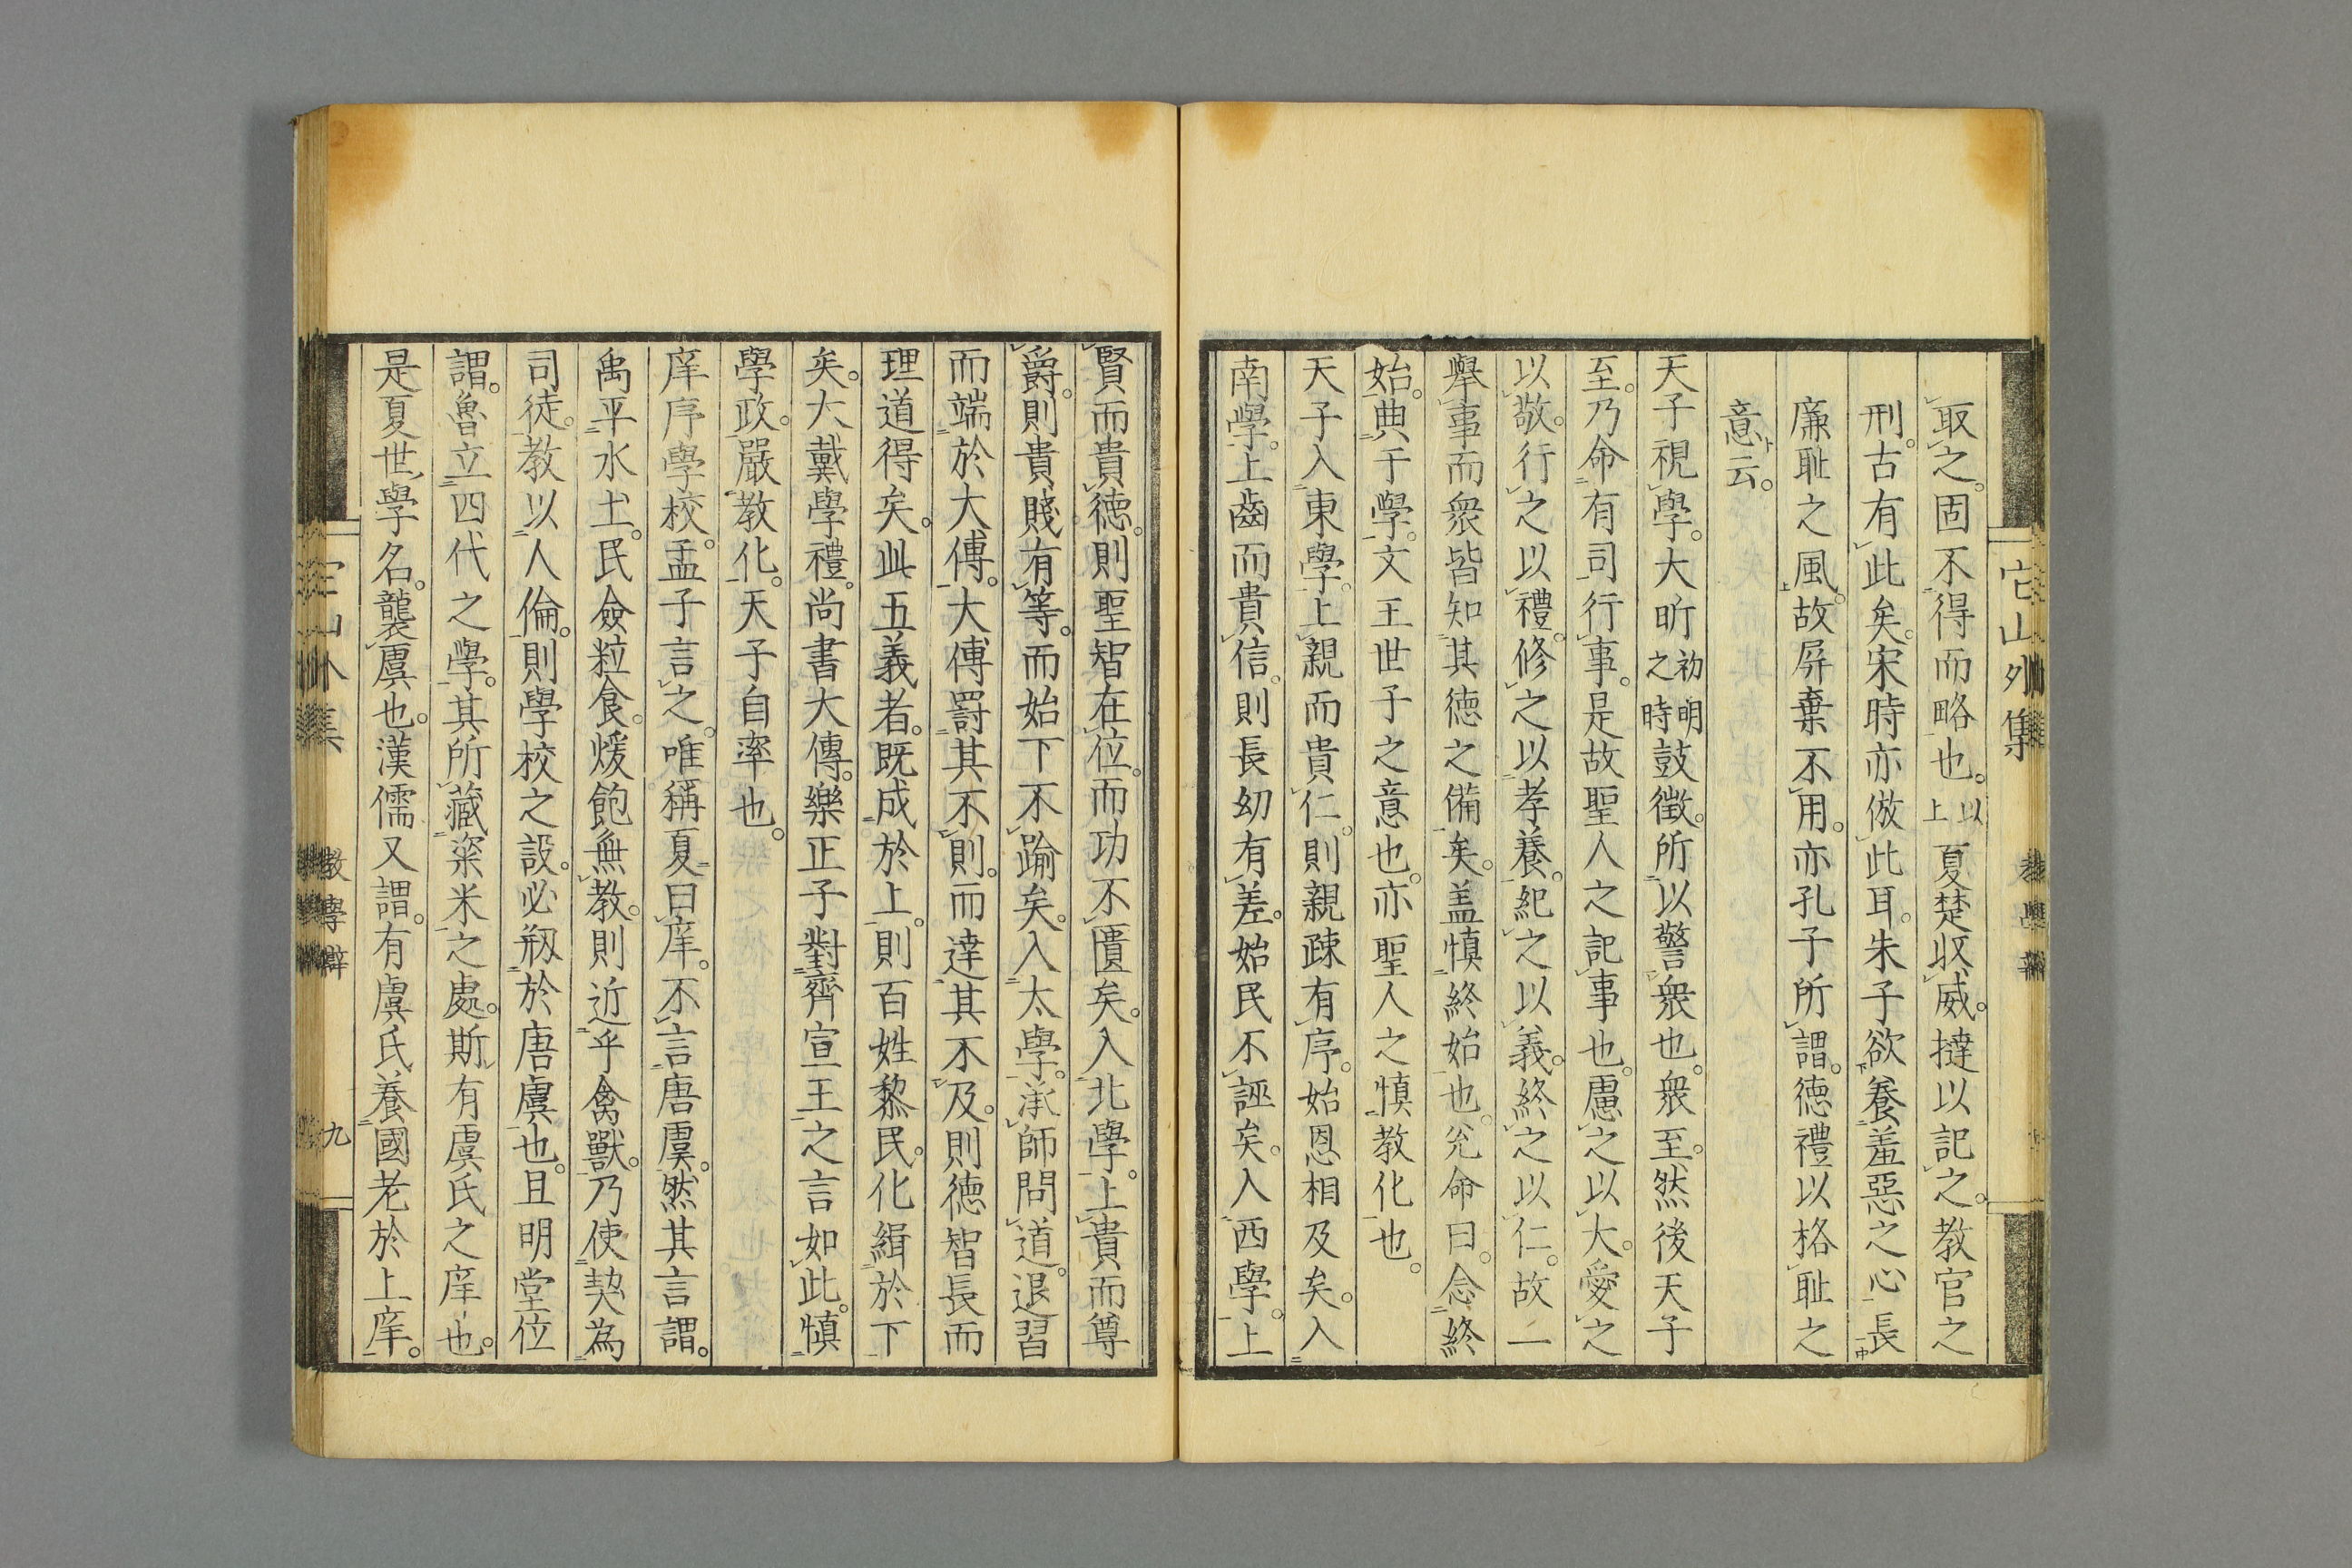 取之。固不得而略也。以上夏楚収威。撻以記之。教官之
刑。古有此矣。宋時亦倣此耳。朱子欲養羞惡之心長
廉耻之風。故屏棄不用。亦孔子所謂。德禮以格耻之
意云。
天子視學。大昕初明之時時鼓徵。所以警衆也。衆至。然後天子
至。乃命有司行事。是故聖人之記事也。慮之以大。愛之
以敬。行之以禮。修之以孝養。紀之以義。終之以仁。故一
擧事而衆皆知其德之備矣。盖慎終始也。兊命曰。念終
始。典于學。文王世子之意也。亦聖人之慎教化也。
天子入東學。上親而貴仁。則親疎有序。始恩相及矣。入
南學。上齒而貴信。則長幼有差。始民不誣矣。入西學。上
它山外集
賢而貴德。則聖智在位。而功不匱矣。入北學。上貴而尊
爵。則貴賤有等。而始下不踰矣。入太學。承師問道。退習
而端於大傅。大傅罰其不則。而達其不及。則德智長而
理道得矣。此五義者。既成於上。則百姓黎民。化緝於下
矣。大戴學禮。尚書大傳。樂正子對齊宣王之言如此。慎
學政。嚴教化。天子自率也。
庠序學校。孟子言之。唯稱夏曰庠。不言唐虞。然其言謂。
禹平水土。民僉粒食。煖飽無教。則近乎禽獸。乃使契為
司徒。教以人倫。則學校之設。必剏於唐虞也。且明堂位
謂。魯立四代之學。其所藏粢米之處。斯有虞氏之庠也。
是夏世學名。襲虞也。漢儒又謂。有虞氏養國老於上庠。
教學辯
九